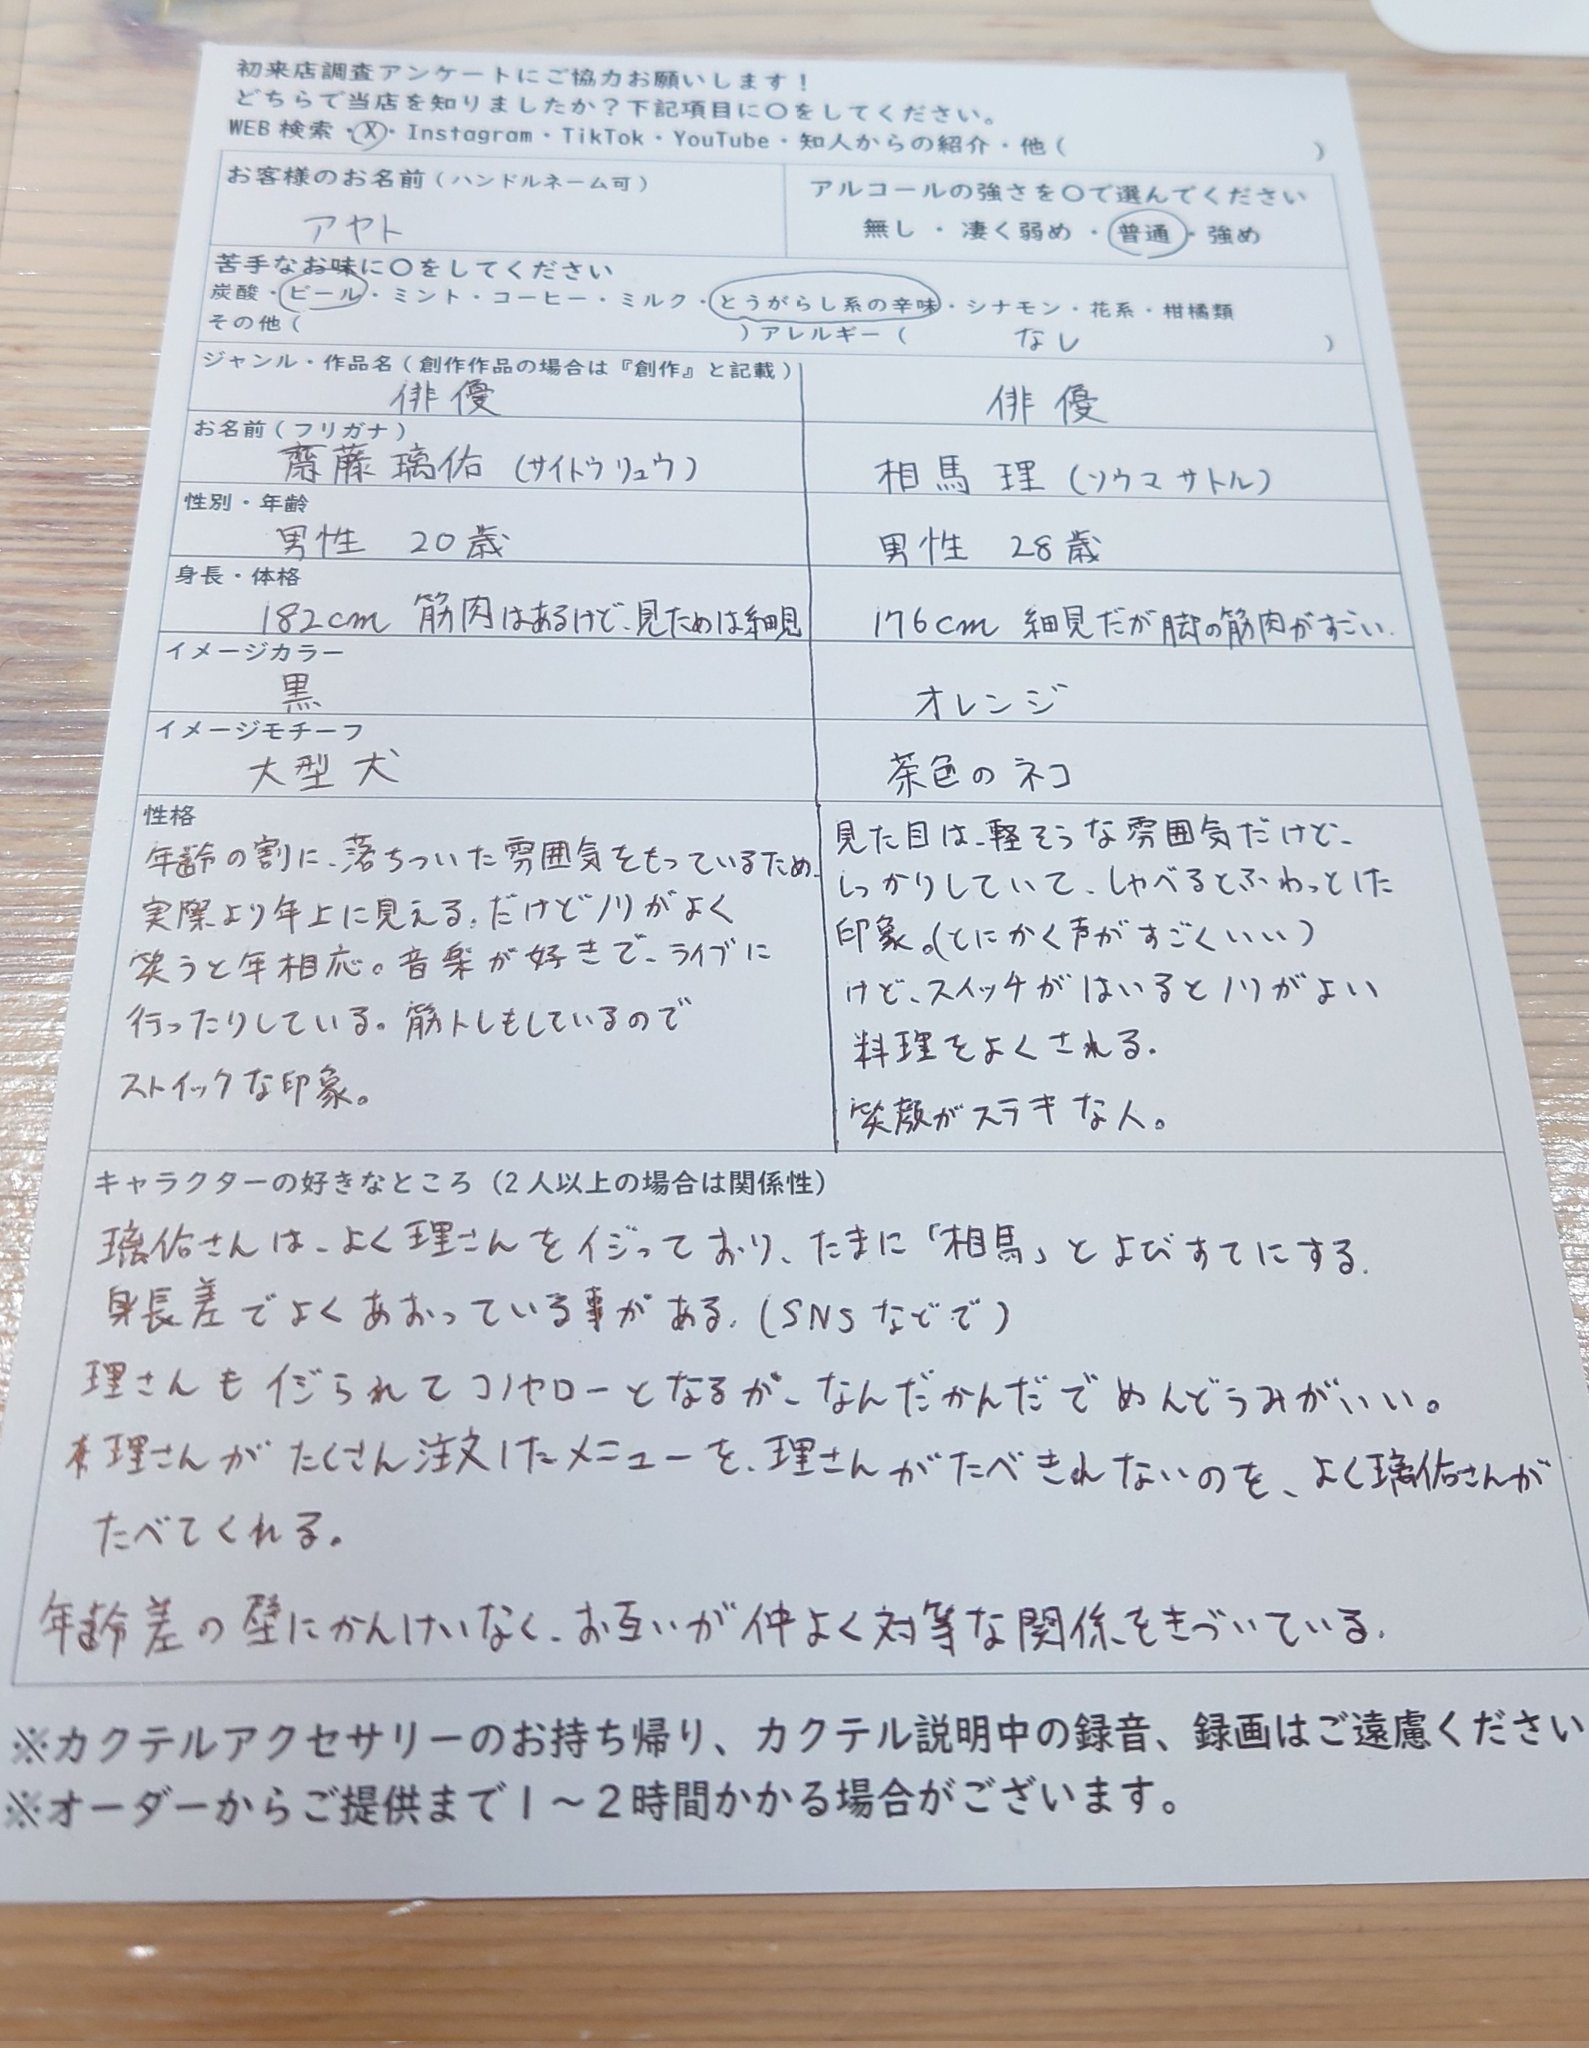 初来店調査アンケートにご協力お願いします！
どちらで当店を知りましたか？下記項目に〇をしてください。
WEB検索・X・Instagram・TikTok・YouTube・知人からの紹介・他（　　　）
お客様のお名前（ハンドルネーム可）
アヤト
アルコールの強さを〇で選んでください
無し・凄く弱め・普通・強め
苦手なお味に〇をしてください
炭酸・ビール・ミント・コーヒー・ミルク・とうがらし系の辛味・シナモン・花系・柑橘類
その他（　　　）アレルギー（　なし　）
ジャンル・作品名（創作作品の場合は『創作』と記載）
俳優　俳優
お名前（フリガナ）
齋藤璃佑（サイトウリュウ）　相馬理（ソウマサトル）
性別・年齢
男性　20歳　男性　28歳
身長・体格
182cm 筋肉はあるけど、見ためは細見　176cm 細見だが脚の筋肉がすごい.
イメージカラー
黒　オレンジ
イメージモチーフ
大型犬　茶色のネコ
性格
年齢の割に、落ちついた雰囲気をもっているため、
実際より年上に見える。だけどノリがよく
笑うと年相応。音楽が好きで、ライブに
行ったりしている。筋トレもしているので
ストイックな印象。
見た目は、軽そうな雰囲気だけど、
しっかりしていて、しゃべるとふわっとした
印象。(とにかく声がすごくいい)
けど、スイッチがはいるとノリがよい
料理をよくされる.
笑顔がステキな人。
キャラクターの好きなところ（2人以上の場合は関係性）
璃佑さんは、よく理さんをイジっており、たまに「相馬」とよびすてにする.
身長差でよくあおっている事がある.（SNSなどで）
理さんもイジられてコノヤローとなるが、なんだかんだでめんどうみがいい。
理さんがたくさん注文したメニューを、理さんがたべきれないのを、よく璃佑さんが
たべてくれる。
年齢差の壁にかんけいなく、お互いが仲よく対等な関係をきづいている.
※カクテルアクセサリーのお持ち帰り、カクテル説明中の録音、録画はご遠慮ください
※オーダーからご提供まで1～2時間かかる場合がございます。